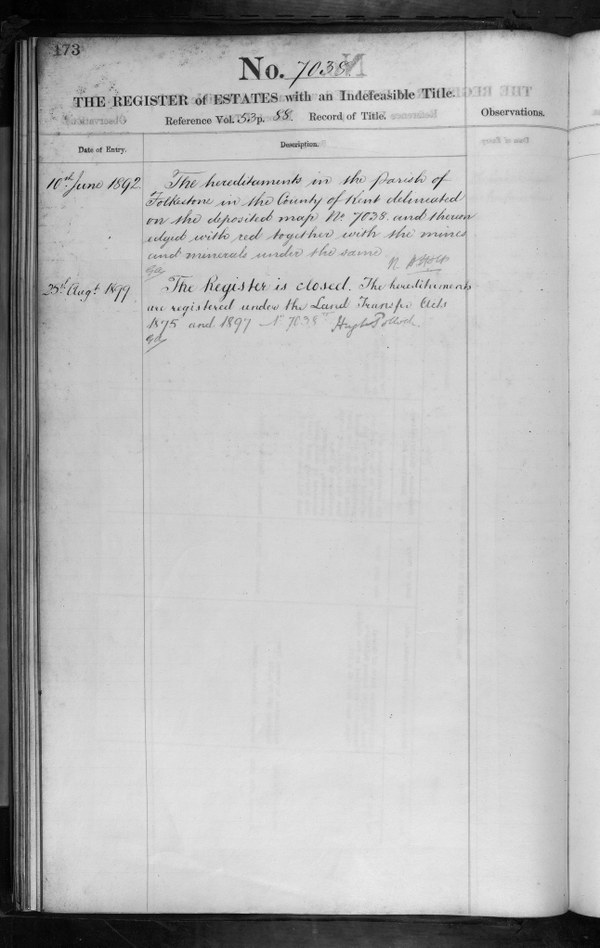 173
No. 7038
THE REGISTER of ESTATES with an Indefeasible Title.
Reference Vol. 53 p. 88. Record of Title.
Observations.
Date of Entry.
Description.
10th June 1892
The hereditaments in the Parish of
Folkestone in the County of Kent delineated
on the deposited map No. 7038 and thereon
edged with red together with the mines
and minerals under the same
25th Augt. 1899
The Register is closed. The hereditaments
are registered under the Land Transfer Acts
1875 and 1897 No. 7038
Hugh Pollock